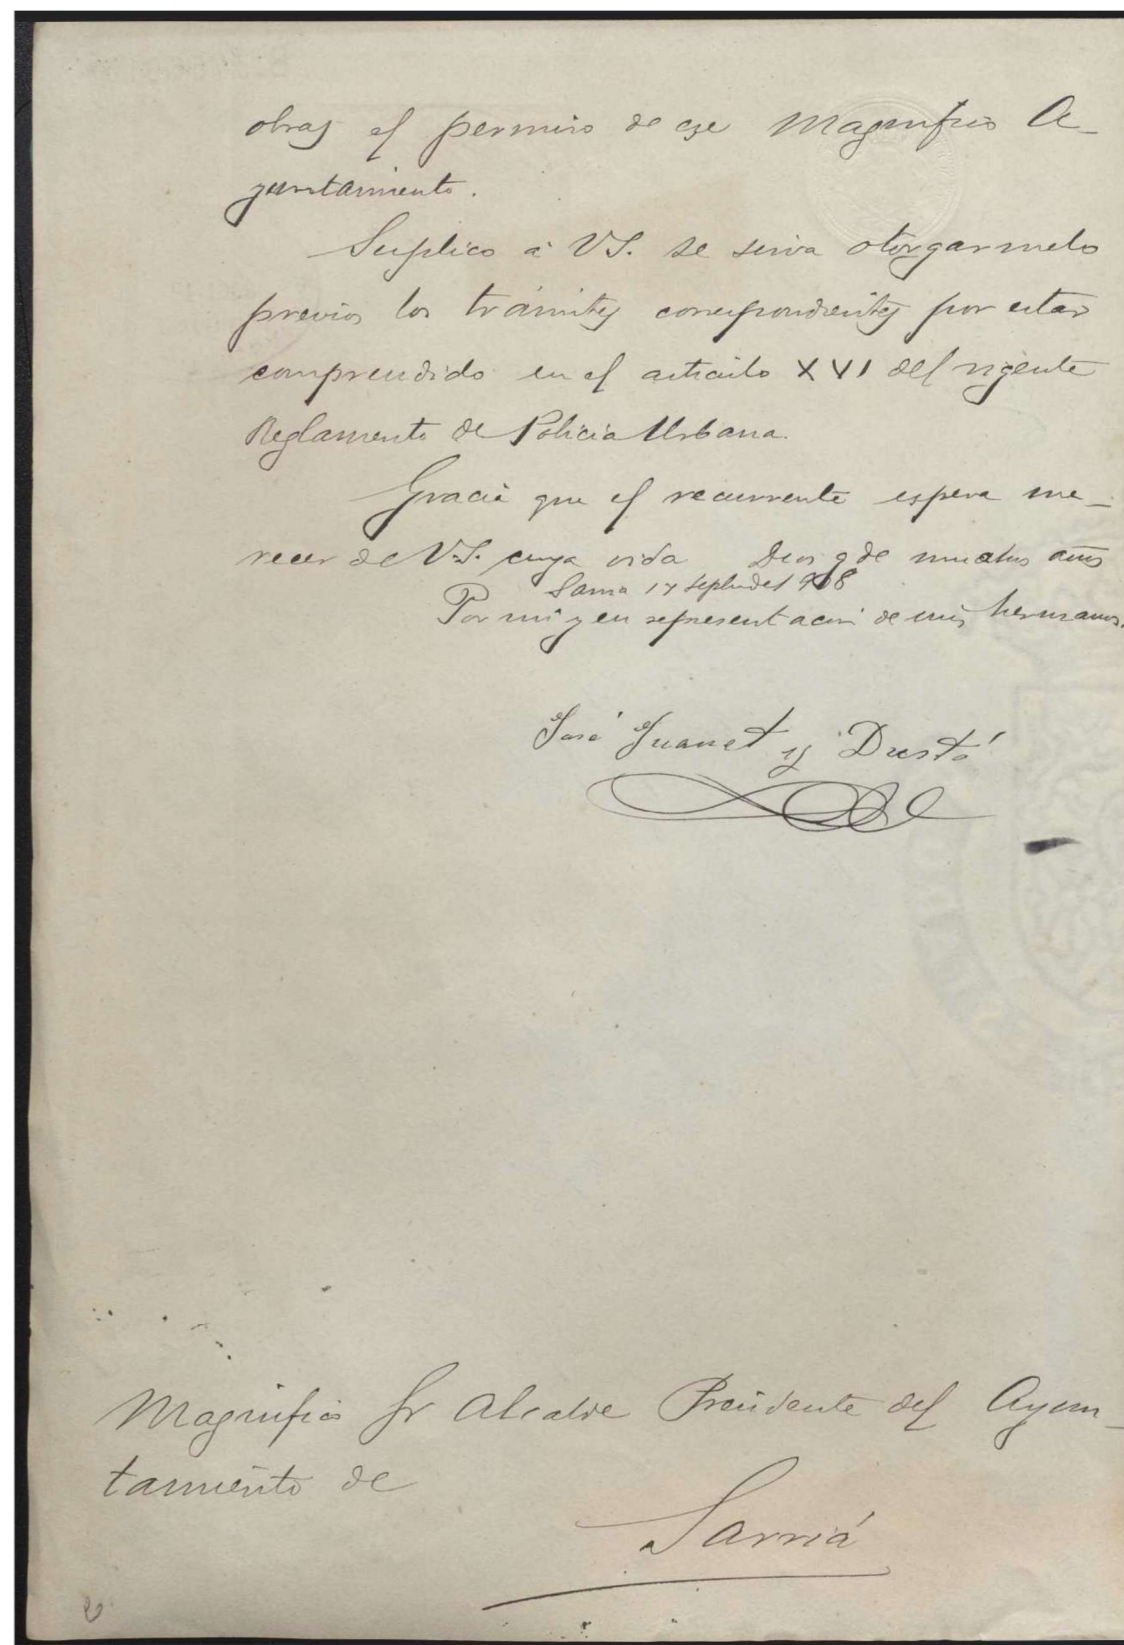 obras el permiso de ese Magnifico A-
yuntamiento.
Suplico á VS. se sirva otorgarmelo
previos los trámites correspondientes por estar
comprendido en el articulo XVI del vigente
Reglamento de Policia Urbana.
Gracia que el recurrente espera me-
recer de V.S. cuya vida Dios gde muchos años
Sarria 17 Septbre de 1908
Por mi y en representacion de mis hermanos.
José Juanet y Dustó
Magnifico Sr Alcalde Presidente del Ayun-
tamiento de
Sarriá